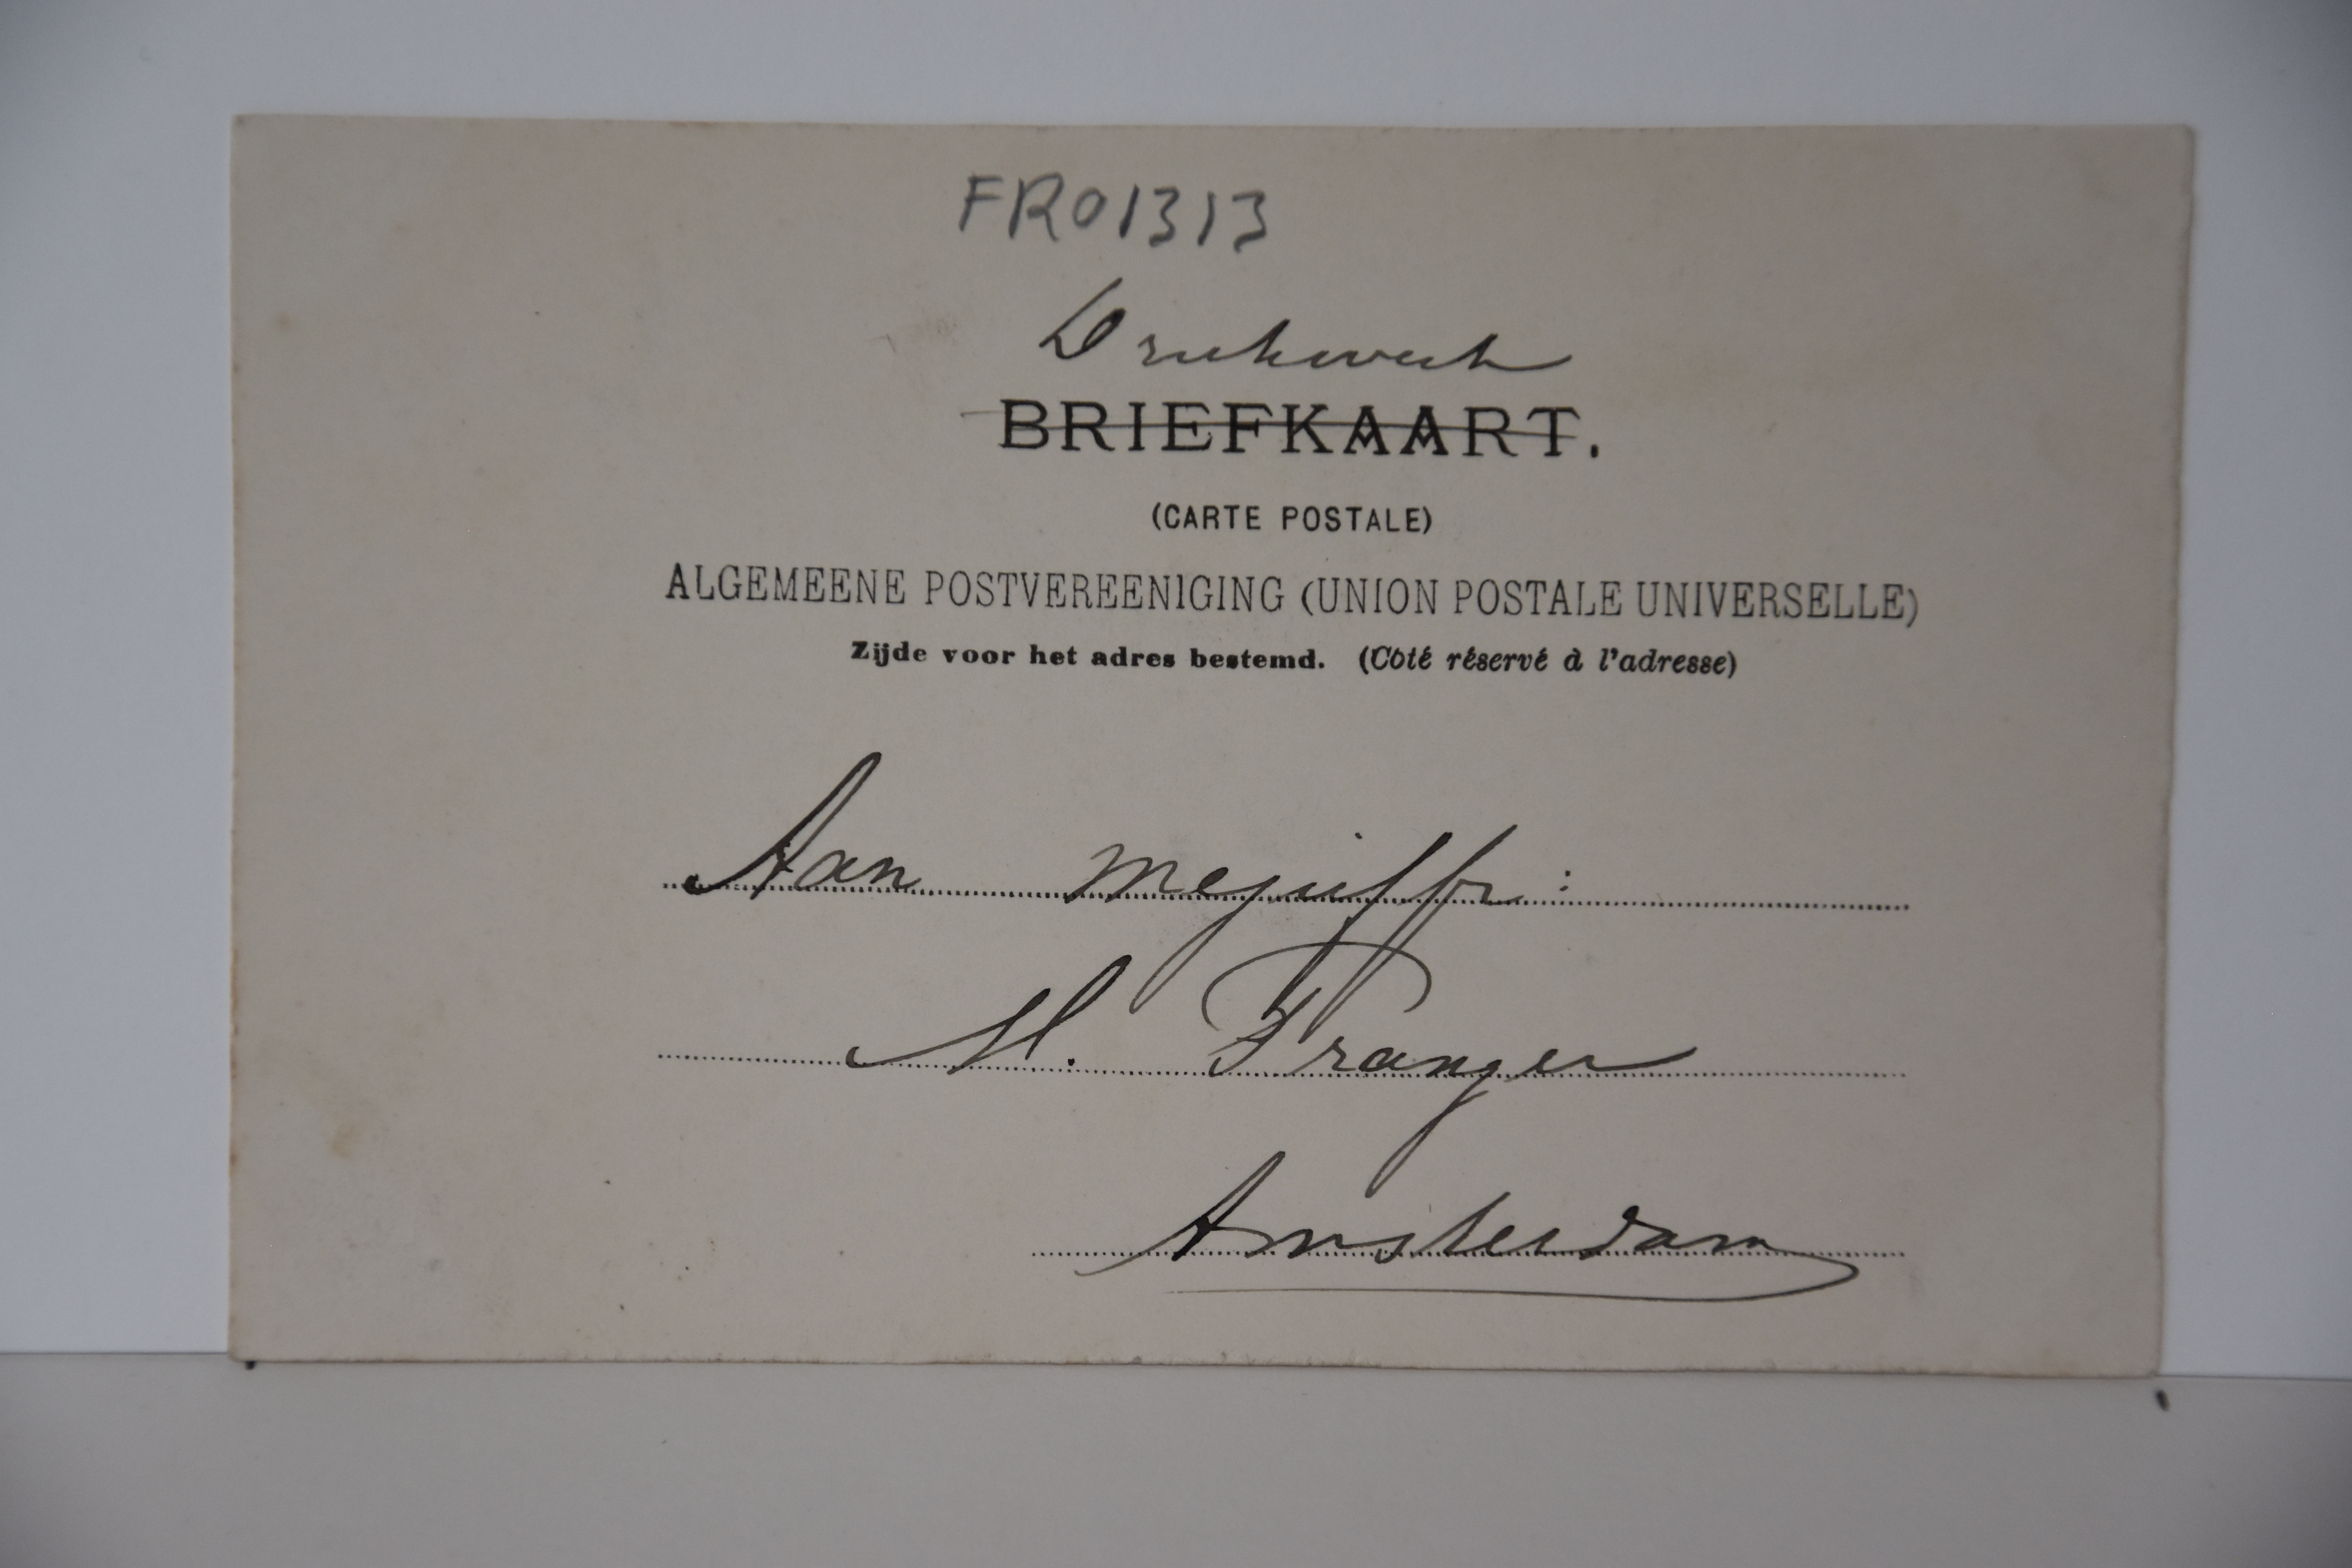 FR01313
Drukwerk
BRIEFKAART.
(CARTE POSTALE)
ALGEMEENE POSTVEREENIGING (UNION POSTALE UNIVERSELLE)
Zijde voor het adres bestemd. (Côté réservé à l'adresse)
Aan mejuffr:
M. Franger
Amsterdam